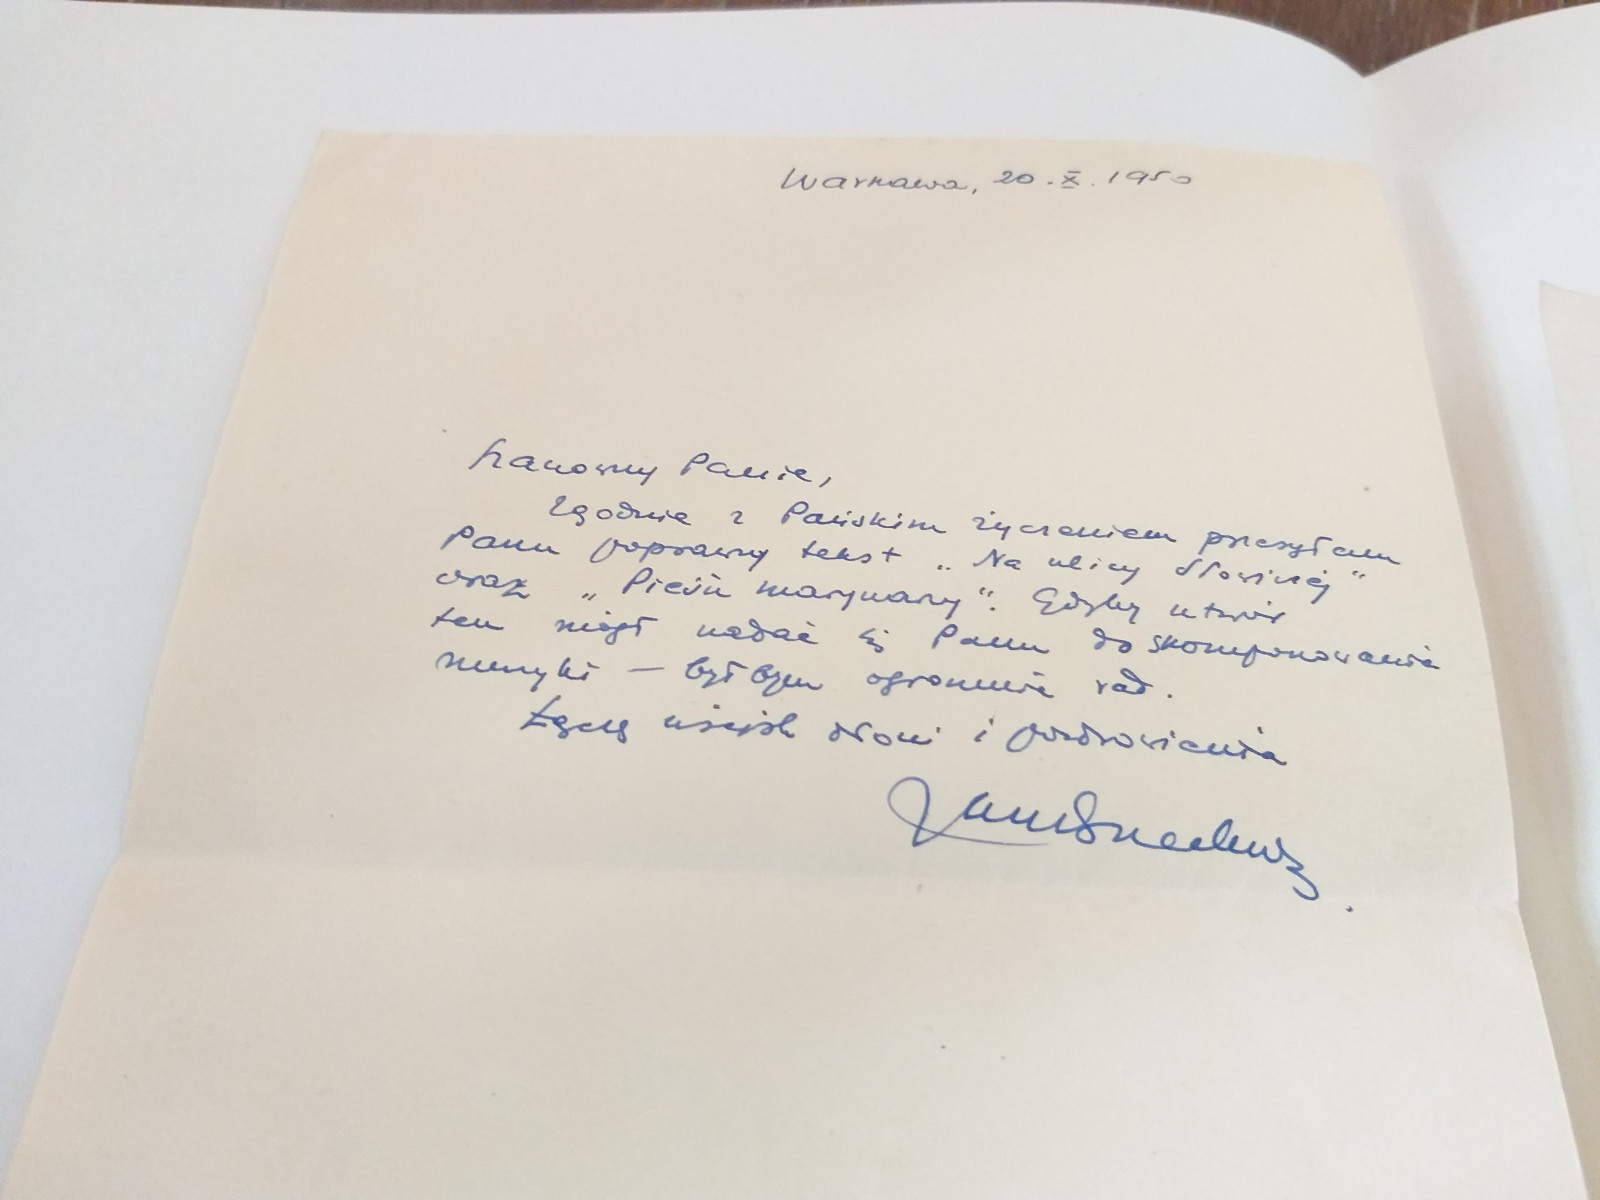 Warszawa, 20.X.1950
Szanowny Panie,
Zgodnie z Pańskim życzeniem przesyłam
Panu poprawny tekst „Na ulicy Słowiczej"
oraz „Pieśń marynarzy". Gdyby utwór
ten mógł nadać się Panu do skomponowania
muzyki – byłbym ogromnie rad.
Łączę uścisk dłoni i pozdrowienia